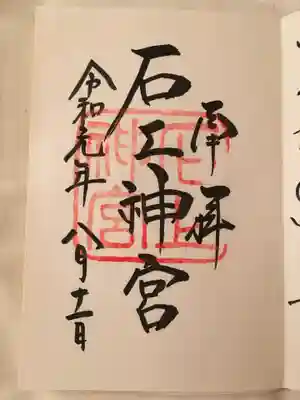 奉拝
石上神宮
令和元年 八月十一日